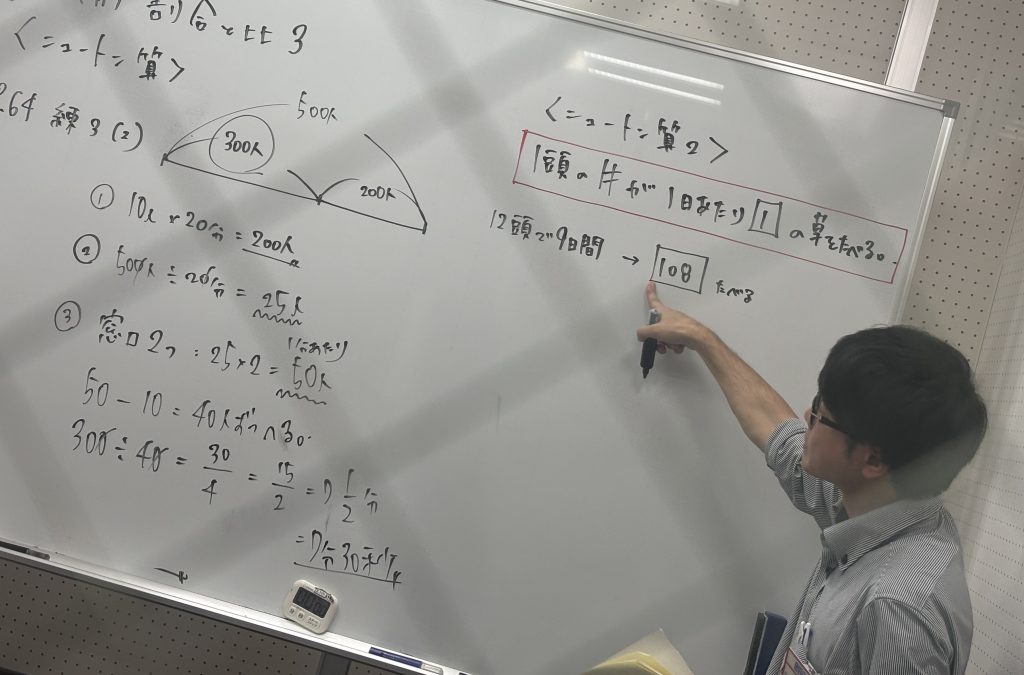 割合と比 3
<ニュートン算>
264 練3(2)
500人
300人
200人
① 10人×20分=200人
② 500人÷20分=25人
1分あたり
③ 窓口2つ:25×2=50人
50-10=40人ずつへる。
300÷40=30/4=15/2=7 1/2分
=7分30秒
<ニュートン算2>
1頭の牛が1日あたり1の草をたべる。
12頭で9日間→108たべる